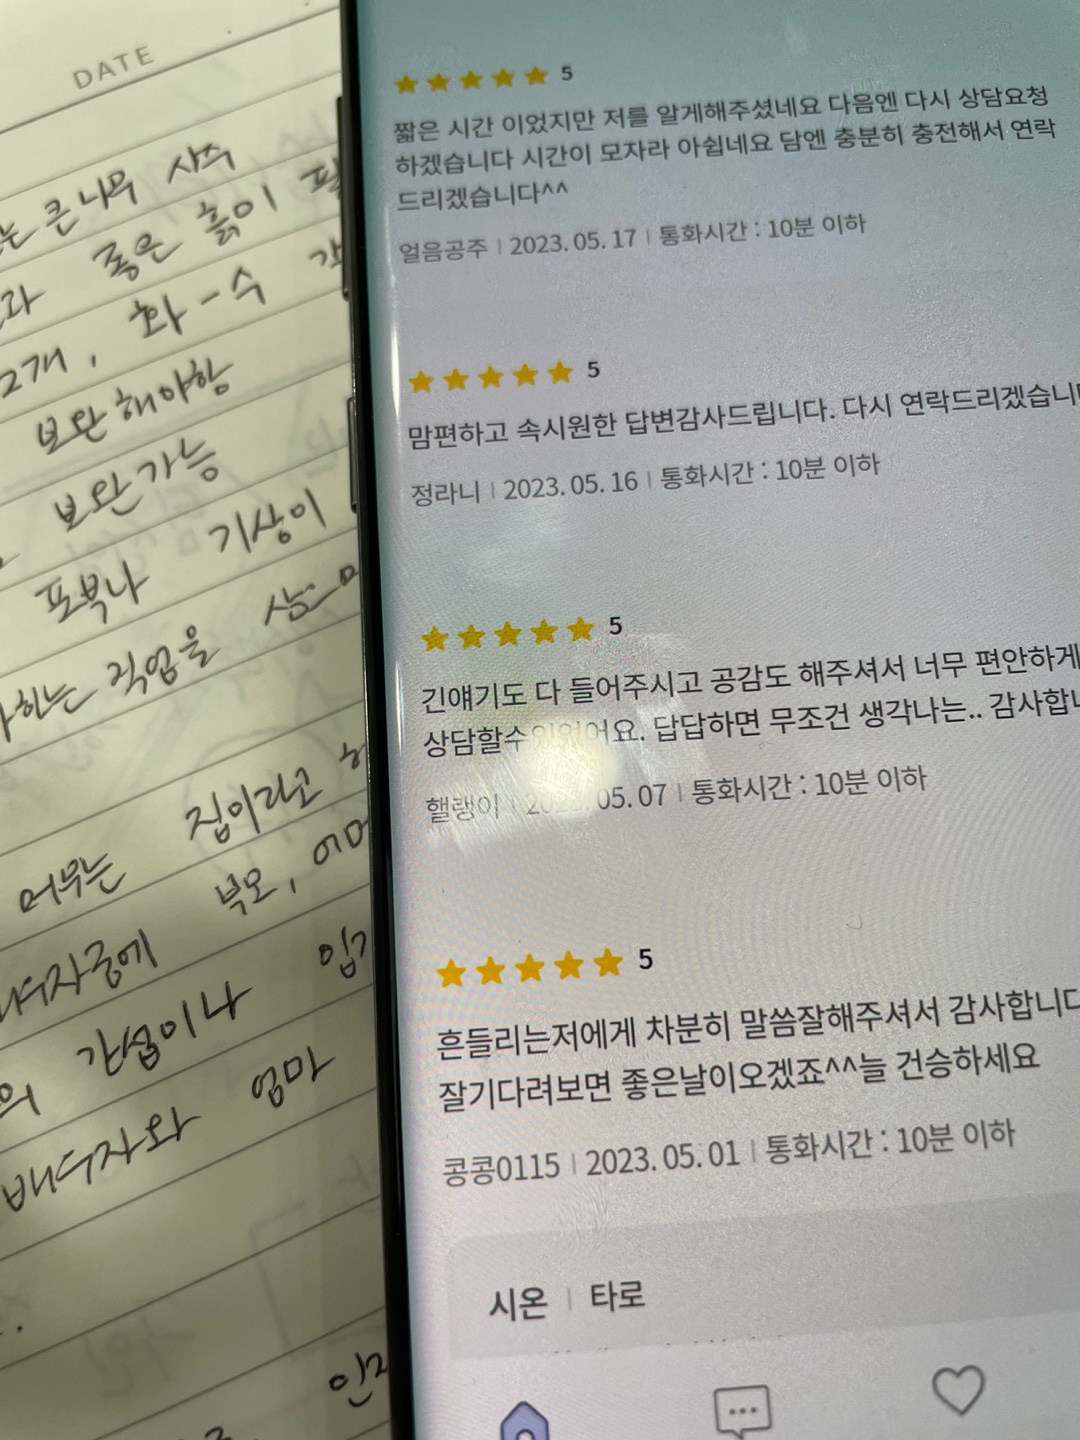 DATE
는 큰 나무 사주
좋은 흙이
2개, 화-수
보완해야함
보완가능
포부나 기상이
하는 직업을
머무는 집이라고
부모,
배우자궁에
의 간섭이나
배우자와 엄마
5
짧은 시간 이었지만 저를 알게해주셨네요 다음엔 다시 상담요청
하겠습니다 시간이 모자라 아쉽네요 담엔 충분히 충전해서 연락
드리겠습니다^^
얼음공주 | 2023. 05. 17 | 통화시간 : 10분 이하
5
맘편하고 속시원한 답변감사드립니다. 다시 연락드리겠습니
정라니 | 2023. 05. 16 | 통화시간 : 10분 이하
5
긴얘기도 다 들어주시고 공감도 해주셔서 너무 편안하게
상담할수있었어요. 답답하면 무조건 생각나는.. 감사합니
핼랭이 | 2023. 05. 07 | 통화시간 : 10분 이하
5
흔들리는저에게 차분히 말씀잘해주셔서 감사합니다
잘기다려보면 좋은날이오겠죠^^늘 건승하세요
콩콩0115 | 2023. 05. 01 | 통화시간 : 10분 이하
시온 | 타로